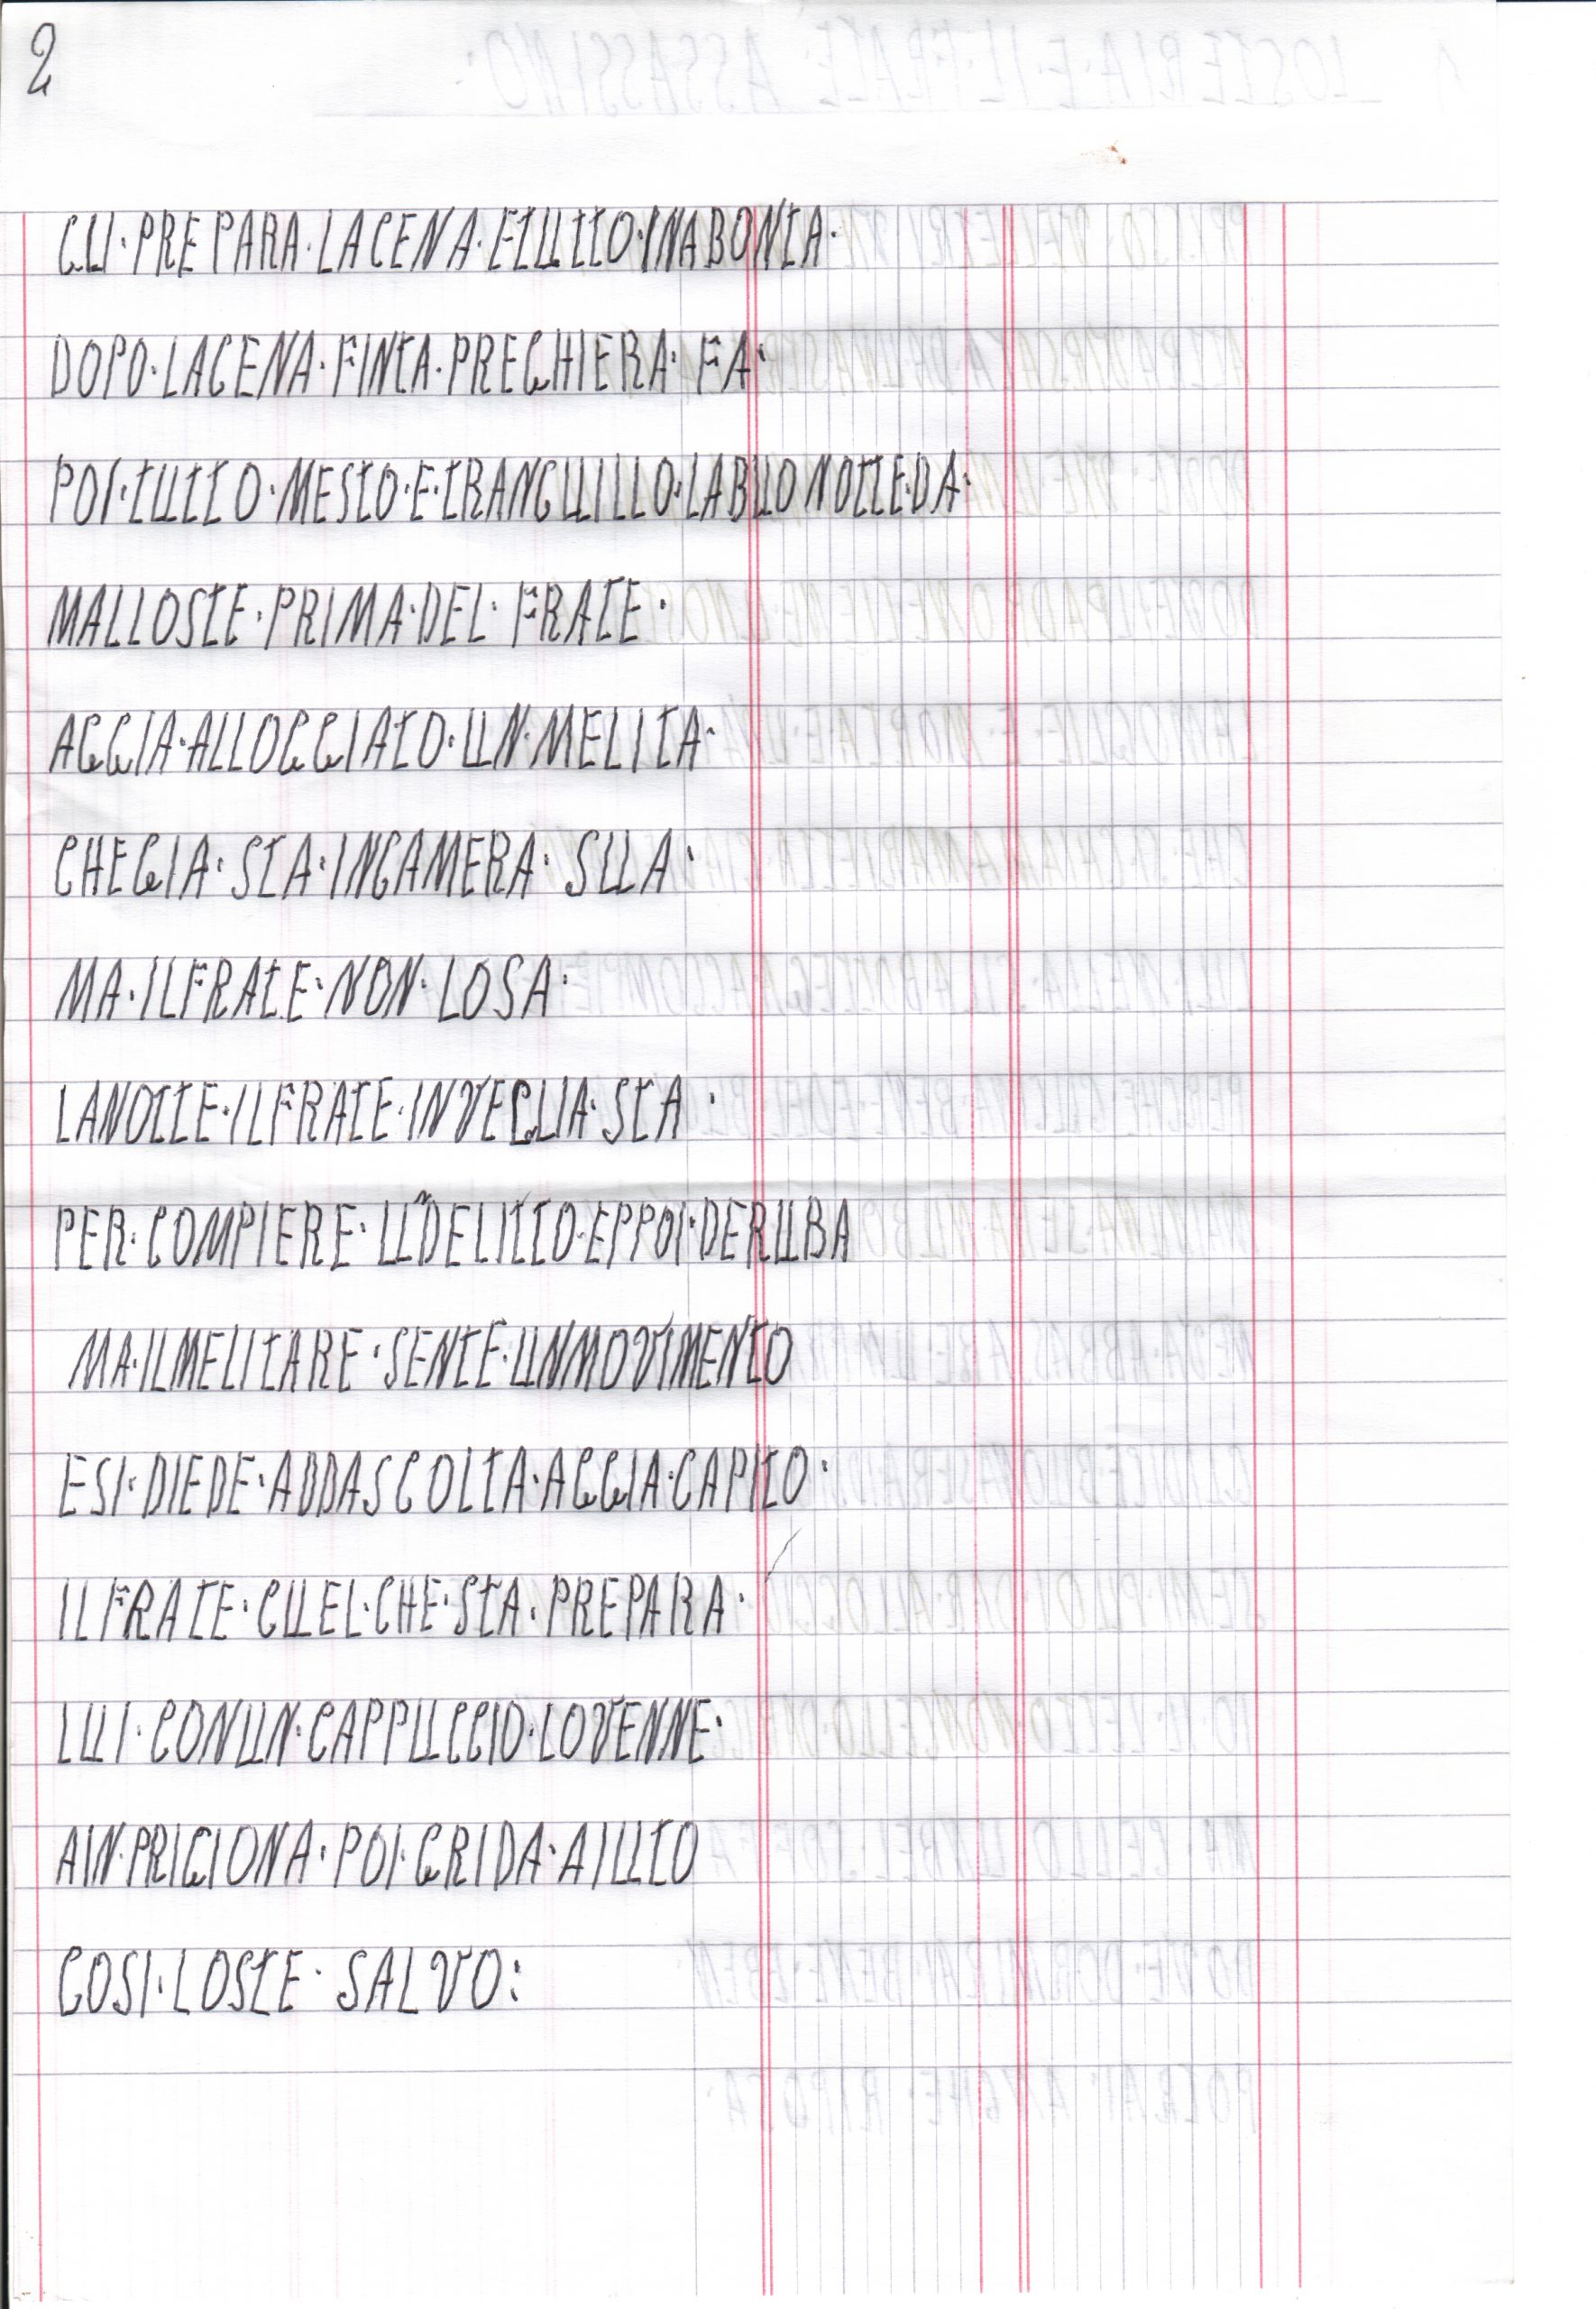 2
GLI·PREPARA·LACENA·ETUTTO·INABONTA·
DOPO·LACENA·FINTA·PREGHIERA·FA·
POI·TUTTO·MESTO·E·TRANCUILLO·LABUONOTTE·DA·
MALLOSTE·PRIMA·DEL·FRATE·
AGGIA·ALLOGGIATO·UN·MELITA·
CHEGIA·STA·INCAMERA·SUA·
MA·ILFRATE·NON·LOSA·
LANOTTE·ILFRATE·INVEGLIA·STA·
PER·COMPIERE·UNDELITTO·EPPOI·DERUBA
MA·ILMELITARE·SENTE·UNMOVIMENTO
ESI·DIEDE·ADDASCOLTA·AGGIA·CAPITO·
ILFRATE·CUEL·CHE·STA·PREPARA·
LUI·CONUN·CAPPUCCIO·LOVENNE·
AIN·PRIGIONA·POI·GRIDA·AIUTO
COSI·LOSTE·SALVO: